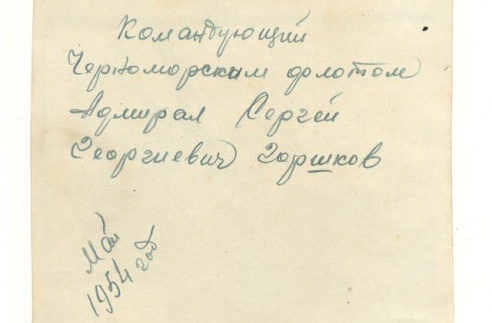 Командующий
Черноморским флотом
Адмирал Сергей
Георгиевич Горшков
Май
1954 год